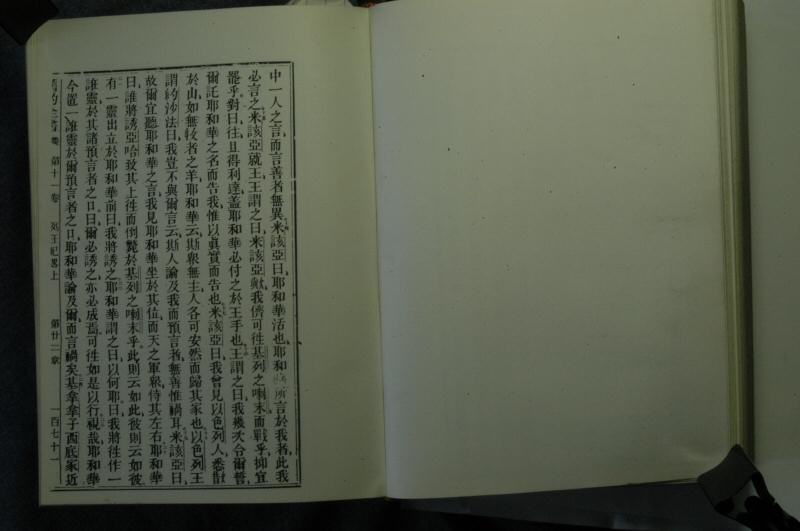 中一人之言、而言善者無異、米該亞曰、耶和華活也、耶和華所言於我者、此我
必言之、米該亞就王、王謂之曰、米該亞歟、我儕可徃基列之喇末而戰乎、抑宜
罷乎、對曰、徃且得利達、蓋耶和華必付之於王手也、王謂之曰、我幾次令爾誓
爾託耶和華之名而告我、惟以眞實而告也、米該亞曰、我曾見以色列人、悉散
於山、如無牧者之羊、耶和華云、斯衆無主、人各可安然而歸其家也、以色列王
謂約沙法曰、我豈不與爾言云、斯人論及我而預言者、無善惟禍耳、米該亞曰、
故爾宜聽耶和華之言、我見耶和華坐於其位、而天之軍衆侍其左右、耶和華
曰、誰將誘亞哈、致其上徃而倒斃於基列之喇末乎、此則云如此、彼則云如彼
有一靈出立於耶和華前曰、我將誘之、耶和華謂之曰、以何耶、曰、我將徃作一
謊靈於其諸預言者之口、曰、爾必誘之、亦必成焉、可徃如是以行、視哉、耶和華
今置一謊靈於爾預言者之口、耶和華論及爾而言禍矣、基拿拿子西底家近
舊約全書 第十一卷 列王紀畧上 第廿二章 一百七十一